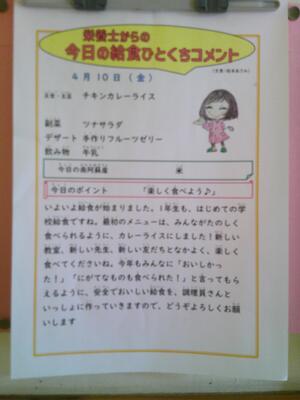 栄養士からの
今日の給食ひとくちコメント
4月10日（金）
主食・主菜 チキンカレーライス
副菜 ツナサラダ
デザート 手作りフルーツゼリー
飲み物 牛乳
今日の南阿蘇産 米
今日のポイント 「楽しく食べよう♪」
いよいよ給食が始まりました。1年生も、はじめての学
校給食ですね。最初のメニューは、みんながたのしく
食べられるように、カレーライスにしました！新しい
教室、新しい先生、新しい友だちとなかよく、楽しく
食べてくださいね。今年もみんなに「おいしかっ
た！」「にがてなものも食べられた！」と言ってもら
えるように、安全でおいしい給食を、調理員さんと
いっしょに作っていきますので、どうぞよろしくお願
いします